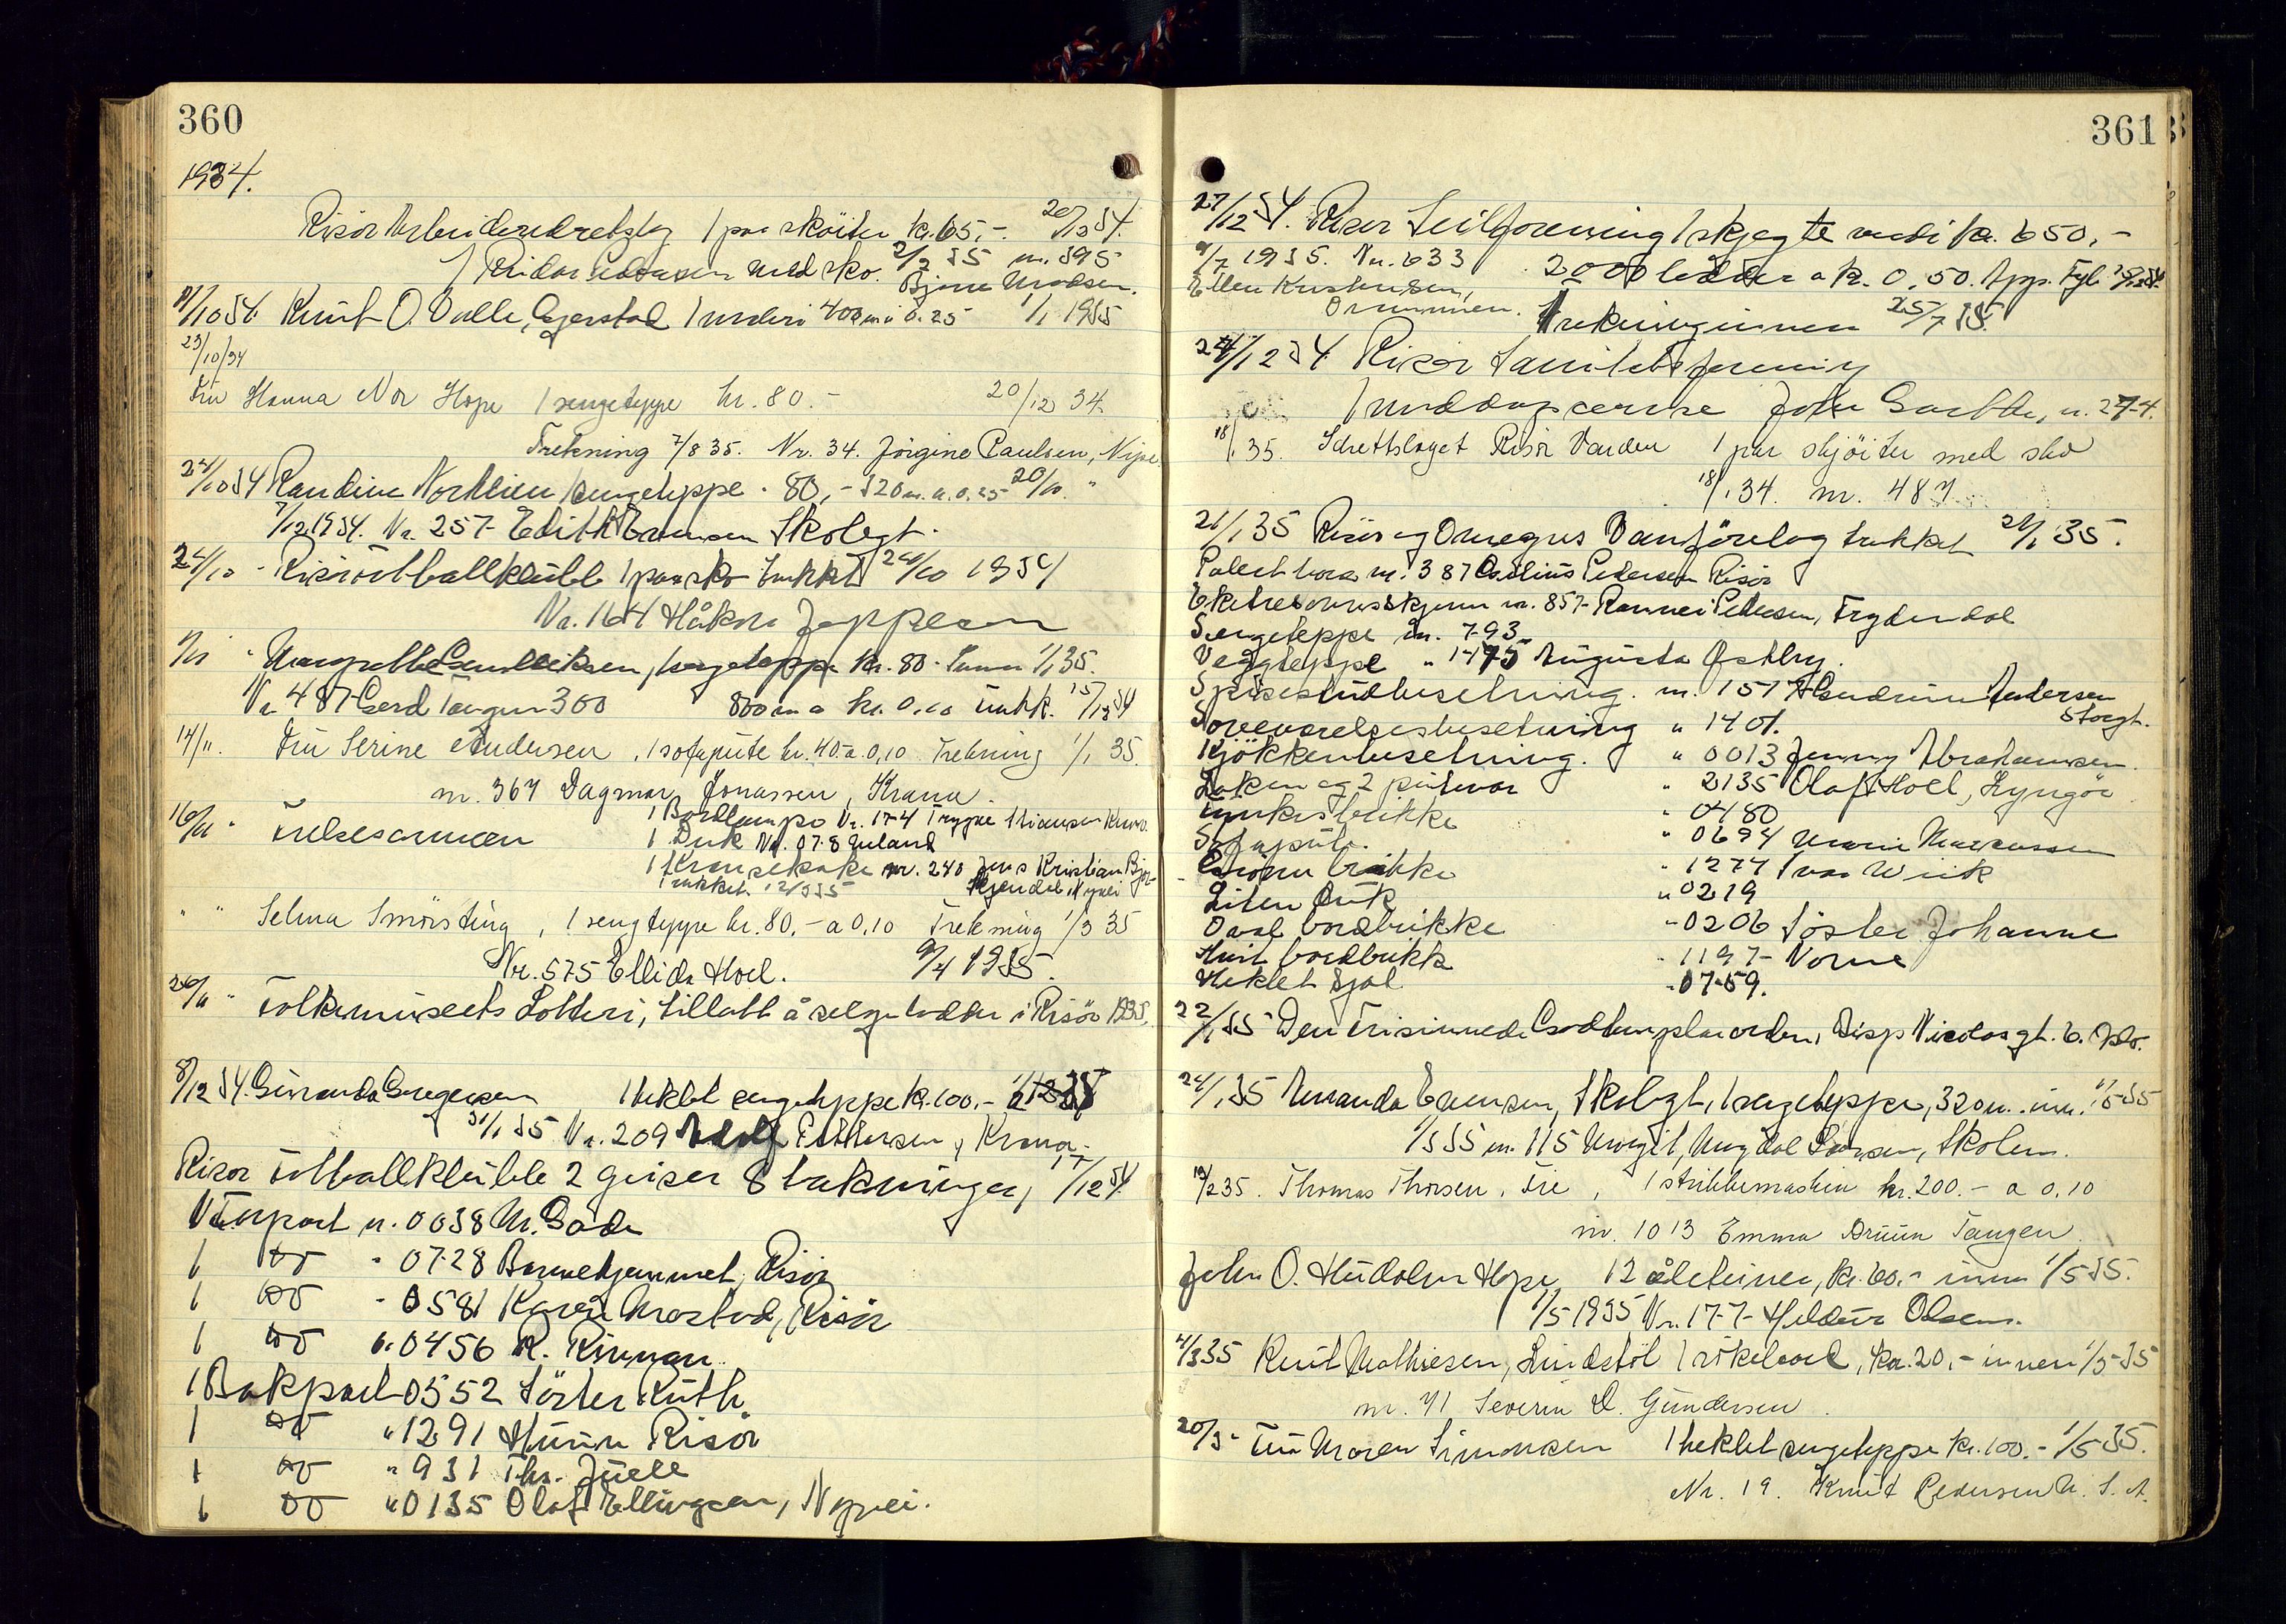 360
1934.
Risör Arbeideridretslag 1 par sköiter kr. 65,-. 20/12 34.
1 Reidar med sko. 2/2 35 nr. 395
Bjarne Madsen.
19/10 34. Knut O. Valle, Gjerstad 1 400 a 0.25 1/1 1935
23/10/34
Fru Hanna Nor Hope 1 sengeteppe kr. 80.- 20/12 34.
Trekning 7/8 35. Nr. 34. Jörgine Paulsen, Nipe
24/10 34 Randine Nordlien 1 sengeteppe. 80,- 320 n. a. 0.25 20/10. "
7/12 1934. Nr. 257 Edith Evensen Skolegt.
24/10 - Risör fotballklubb 1 par sko trukket 24/10 1934
Nr. 164 Håkon Jeppesen
1/11 " Margrethe Hendriksen, 1 sengeteppe kr. 80. innen 1/1 35.
Nr 487 Gerd Tangen 360 800 a kr. 0.10 trukk. 15/12 34
14/11. Fru Serine Andersen, 1 sofapute kr. 40.- a. 0,10 Trekning 1/1 35.
nr. 367 Dagmar Jonassen, Krana.
16/11 " Frelsesarmeen 1 Bordlampe Nr. 174 Trygve Krana.
1 Duk Nr. 078
1 Kransekake nr. 240 Jens Kristian Bjor-
trukket 12/1 35
" " Selma Smörsting, 1 sengteppe kr. 80.- a 0,10 Trekning 1/3 35
Nr. 575 Ellida Hoel. 9/4 1935.
26/11 " Folkemuseets Lotteri, tillatt å selge lodder i Risör 1935.
8/12 34. Gunanda Gregersen 1 heklet sengeteppe kr. 100,-
31/1 35 Nr. 209 Adolf Pettersen, Krana.
Risör Fotballklubb 2 griser 8 trekninger, 17/12 34.
1 Forpart n. 0038 M. Gade
1 do " 0728 Barnehjemmet, Risör
1 do - 0581 Karen Risör
1 do n. 0456 R. Rinnan.
1 Bakpart 0552 Söster Ruth.
1 do " 1291 Huun Risör
1 do " 931 Ths. Juell
1 do " 0135 Olaf Ellingsen, Nyvei.
361
27/12 34. Risör Seilforening 1 skjegte verdi kr. 650,-
9/7 1935. Nr. 633 2000 lodder a kr. 0.50. App. Fylk.
Ellen Kristensen, Trekning innen 25/7 35.
27/12 34 Risör Sanitetsforening
1 middagservise John Garthe, n. 274.
18/1 35. Idrettslaget Risör Varden 1 par skjöiter med sko
18/1 34. nr. 487
21/1 35 Risör og Omegns Vanförelag trukket 21/1 35.
nr. 387 Pedersen Risör
nr. 857 Ranvei Pedersen, Frydendal
Sengeteppe nr. 793
Veggteppe " 1475 Augusta Østby.
Spisestuebesetning. nr. 1517 Gudrun Andersen
Storgt.
Soveværelsesbesetning " 1401.
Kjökkenbesetning. " 0013 Jenny Abrahamsen.
Laken og 2 putevar " 2135 Olaf Hoel, Lyngör
brikke " 0480
Sofapute. " 0694 Marie Marcussen
brikke " 1277 Ivar Wiik
Liten Duk " 0219
Oval bordbrikke - 0206 Söster Johanne
Hvit bordbrikk " 1197 Vorme
Heklet Sjal - 0759.
22/1 35 Den Frisinnede Godtemplarorden, Disp Nicolasgt. 6. Oslo.
24/1 35 Amanda Evensen, Skolegt, 1 sengeteppe, 320 n. inn. 1/5 35
1/3 35 nr. 115 Margit, Larsen, Skolen.
19/2 35. Thomas Thorsen, Fie, 1 strikkemaskin kr. 200.- a 0,10
nr. 1013 Emma Druun Tangen.
John O. Hudalen Hope, 12 åleteiner, kr. 60.- innen 1/5 35.
1/5 1935 Nr. 177 Heldur Olsen.
4/3 35 Knut Mathiesen, Lindstöl 1 rökebord, kr. 20,- innen 1/5 35
nr. 71 Severin D. Gundersen.
20/3 - Fru Maren Simonsen 1 heklet sengeteppe kr. 100.- 1/5 35.
Nr. 19. Knut Pedersen U.S.A.